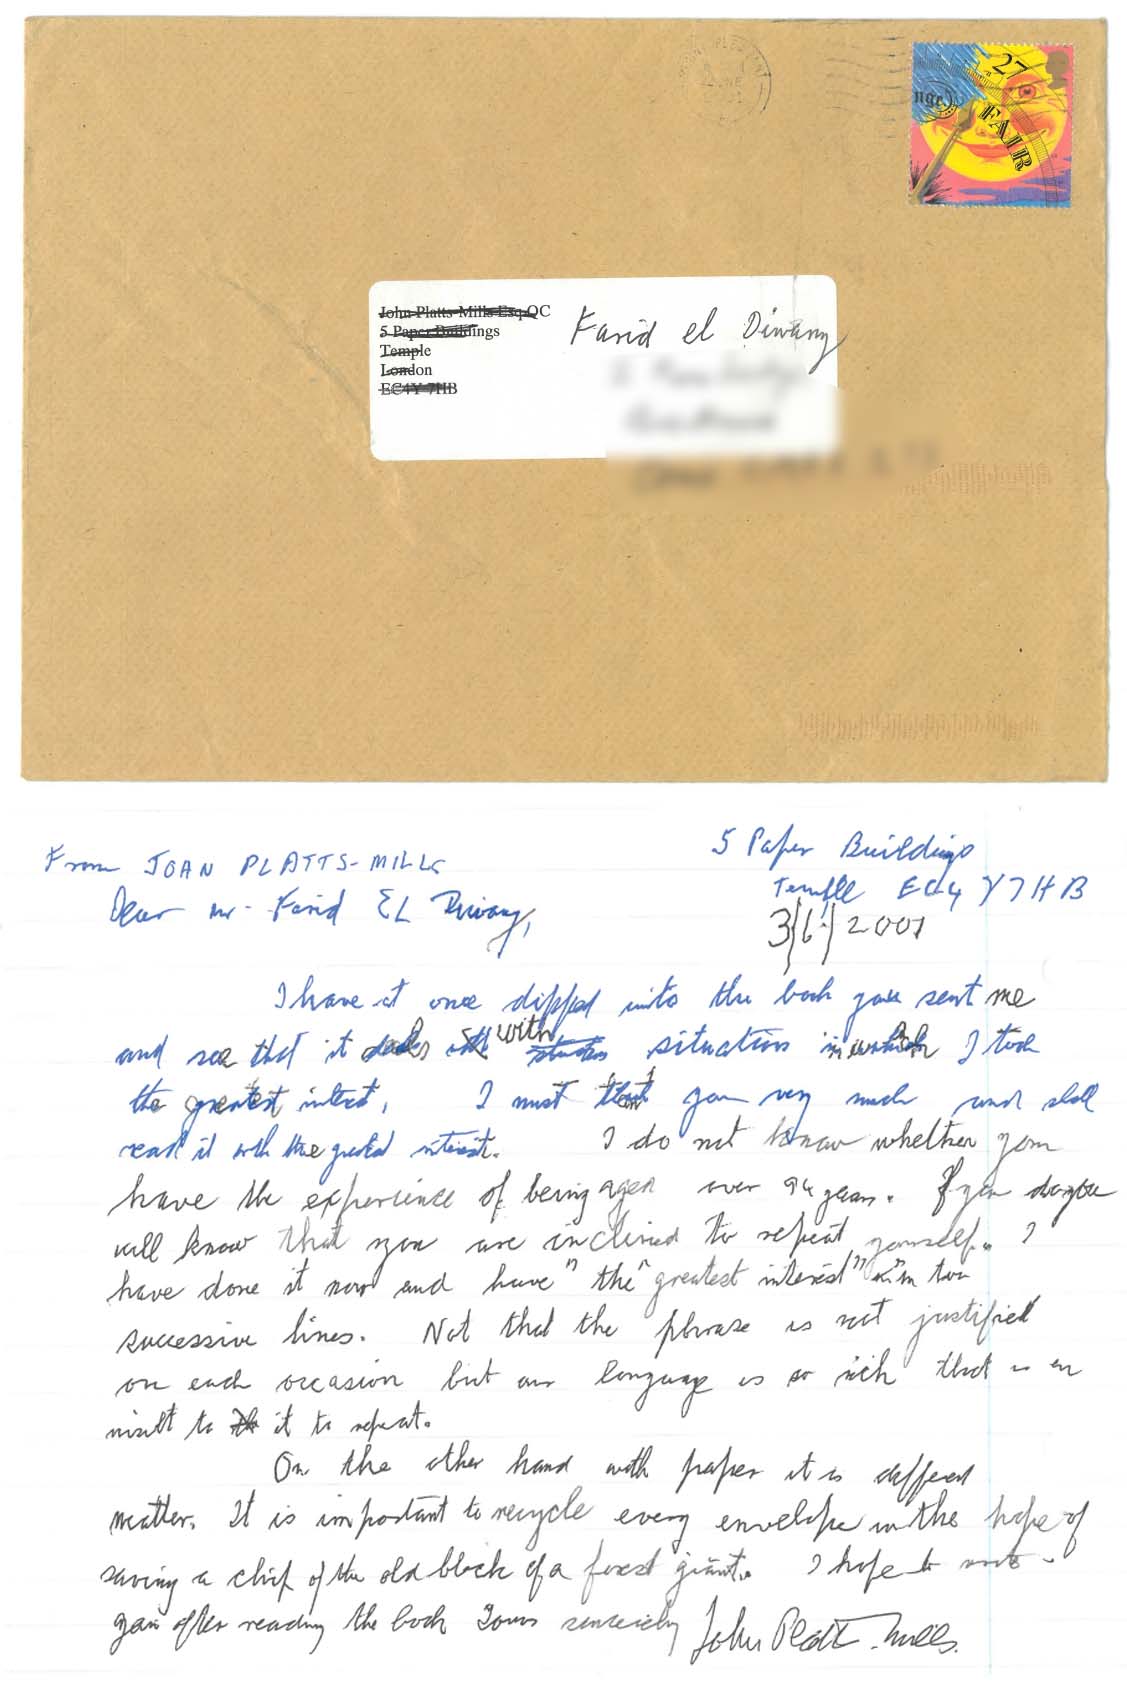 27
nge
FAIR
John Platts-Mills Esq QC
5 Paper Buildings
Temple
London
EC4Y 7HB
Farid el Diwany
From JOHN PLATTS-MILLS
5 Paper Buildings
Temple EC4Y 7HB
3/6/2001
Dear Mr. Farid EL Diwany,
I have at once dipped into the book you sent me
and see that it deals with situations in which I took
the greatest interest, I must thank you very much and shall
read it with the greatest interest. I do not know whether you
have the experience of being aged over 94 years. If you do you
will know that you are inclined to repeat yourself. I
have done it now and have "the greatest interest" in two
successive lines. Not that the phrase is not justified
on each occasion but our language is so rich that is an
insult to it to repeat.
On the other hand with paper it is different
matter. It is important to recycle every envelope in the hope of
saving a chip of the old block of a forest giant. I hope to write
gain after reading the book Yours sincerely John Platts-Mills.